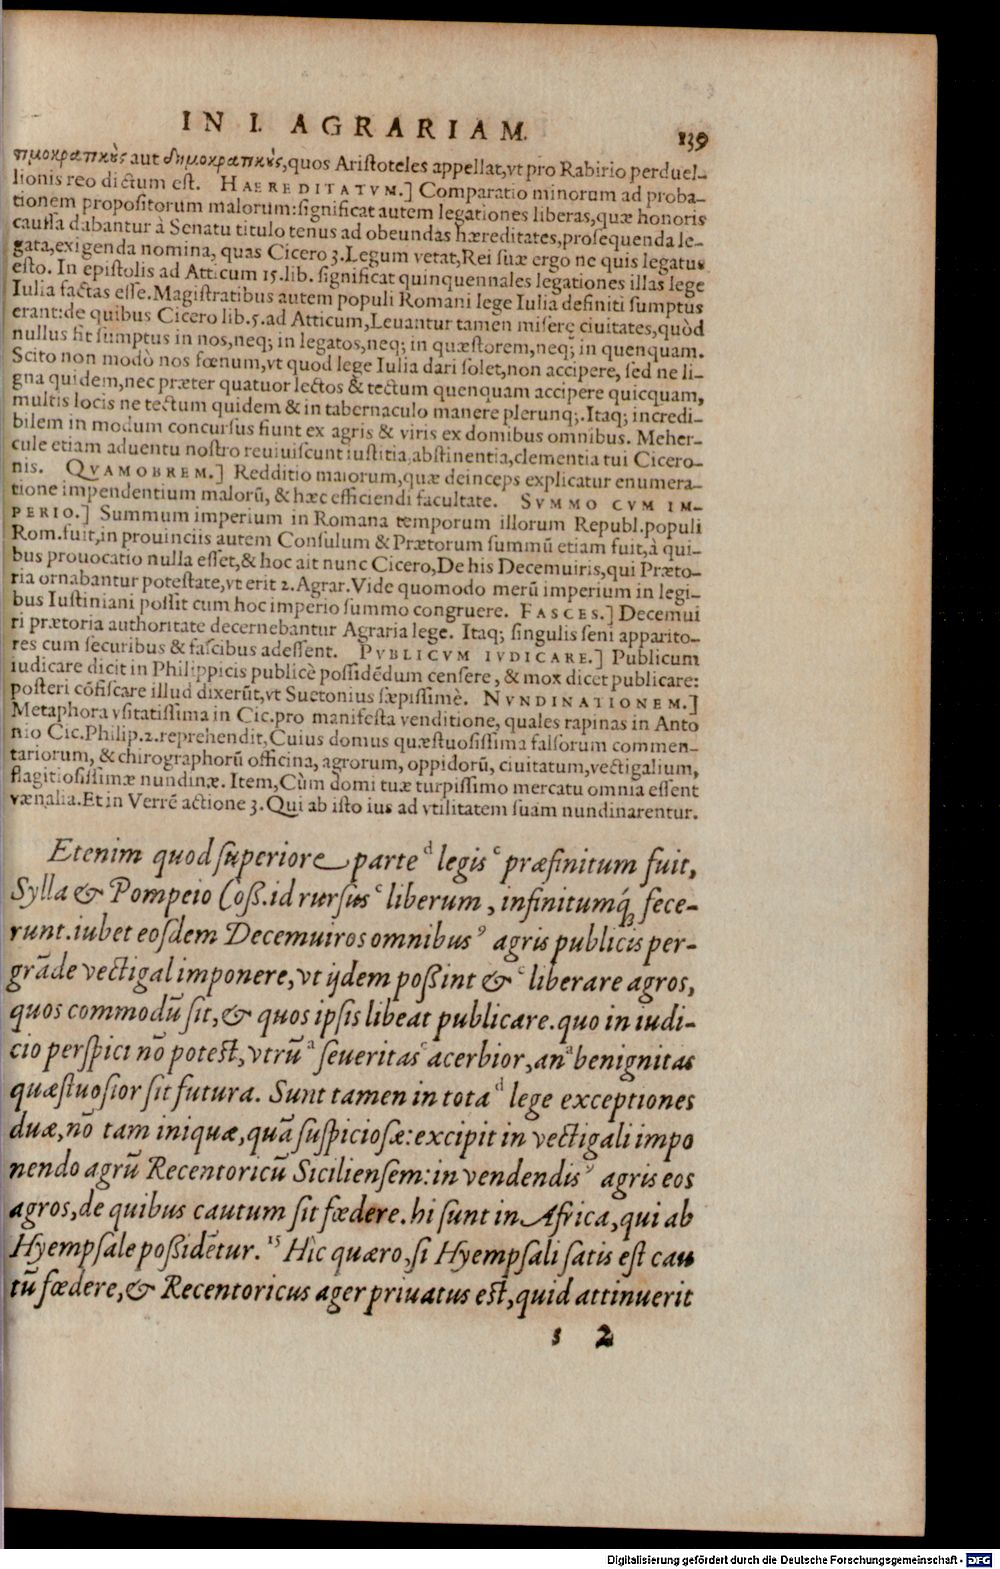 IN I. AGRARIAM. 139
τιμοκρατικὺς aut δημοκρατικὺς, quos Aristoteles appellat, vt pro Rabirio perduel-
lionis reo dictum est. HAEREDITATVM.] Comparatio minorum ad proba-
tionem propositorum malorum: significat autem legationes liberas, quæ honoris
caussa dabantur à Senatu titulo tenus ad obeundas hæreditates, prosequenda le-
gata, exigenda nomina, quas Cicero 3. Legum vetat, Rei suæ ergo ne quis legatus
esto. In epistolis ad Atticum 15. lib. significat quinquennales legationes illas lege
Iulia factas esse. Magistratibus autem populi Romani lege Iulia definiti sumptus
erant: de quibus Cicero lib. 5. ad Atticum, Leuantur tamen miserę ciuitates, quòd
nullus fit sumptus in nos, neq; in legatos, neq; in quæstorem, neq; in quenquam.
Scito non modò nos fœnum, vt quod lege Iulia dari solet, non accipere, sed ne li-
gna quidem, nec præter quatuor lectos & tectum quenquam accipere quicquam,
multis locis ne tectum quidem & in tabernaculo manere plerunq;. Itaq; incredi-
bilem in modum concursus fiunt ex agris & viris ex domibus omnibus. Meher-
cule etiam aduentu nostro reuiuiscunt iustitia, abstinentia, clementia tui Cicero-
nis. QVAMOBREM.] Redditio maiorum, quæ deinceps explicatur enumera-
tione impendentium malorū, & hæc efficiendi facultate. SVMMO CVM IM-
PERIO.] Summum imperium in Romana temporum illorum Republ. populi
Rom. fuit, in prouinciis autem Consulum & Prætorum summū etiam fuit, à qui-
bus prouocatio nulla esset, & hoc ait nunc Cicero, De his Decemuiris, qui Præto-
ria ornabantur potestate, vt erit 2. Agrar. Vide quomodo merū imperium in legi-
bus Iustiniani possit cum hoc imperio summo congruere. FASCES.] Decemui
ri prætoria authoritate decernebantur Agraria lege. Itaq; singulis seni apparito-
res cum securibus & fascibus adessent. PVBLICVM IVDICARE.] Publicum
iudicare dicit in Philippicis publicè possidēdum censere, & mox dicet publicare:
posteri cōfiscare illud dixerūt, vt Suetonius sæpissimè. NVNDINATIONEM.]
Metaphora vsitatissima in Cic. pro manifesta venditione, quales rapinas in Anto
nio Cic. Philip. 2. reprehendit, Cuius domus quæstuosissima falsorum commen-
tariorum, & chirographorū officina, agrorum, oppidorū, ciuitatum, vectigalium,
flagitiosissimæ nundinæ. Item, Cùm domi tuæ turpissimo mercatu omnia essent
vænalia. Et in Verrē actione 3. Qui ab isto ius ad vtilitatem suam nundinarentur.
Etenim quod superiore parte d legis c præfinitum fuit,
Sylla & Pompeio Coß. id rursus c liberum, infinitumq́; fece-
runt. iubet eosdem Decemuiros omnibus 9 agris publicis per-
grāde vectigal imponere, vt ijdem poßint & c liberare agros,
quos commodū sit, & quos ipsis libeat publicare. quo in iudi-
cio perspici nō potest, vtrū a seueritas c acerbior, an a benignitas
quæstuosior sit futura. Sunt tamen in tota d lege exceptiones
duæ, nō tam iniquæ, quā suspiciosæ: excipit in vectigali impo
nendo agrū Recentoricū Siciliensem: in vendendis 9 agris eos
agros, de quibus cautum sit fœdere. hi sunt in Africa, qui ab
Hyempsale poßidētur. 15 Hîc quæro, si Hyempsali satis est cau
tū fœdere, & Recentoricus ager priuatus est, quid attinuerit
s 2
Digitalisierung gefördert durch die Deutsche Forschungsgemeinschaft - DFG